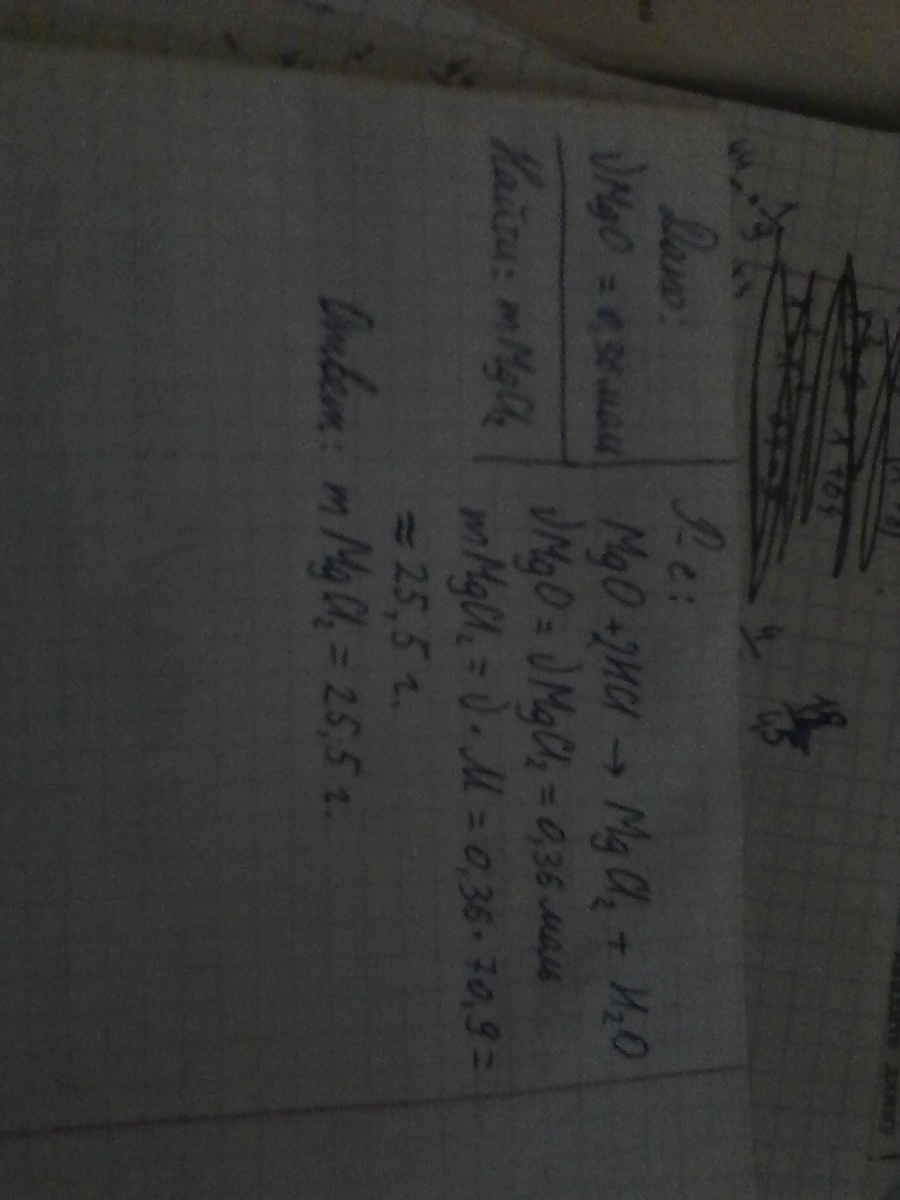 Дано:
νMgO = 0,36 мол
Найти: mMgCl₂
Р-е:
MgO + 2HCl → MgCl₂ + H₂O
νMgO = νMgCl₂ = 0,36 моль
mMgCl₂ = ν · M = 0,36 · 70,9 =
= 25,5 г.
Ответ: mMgCl₂ = 25,5 г.